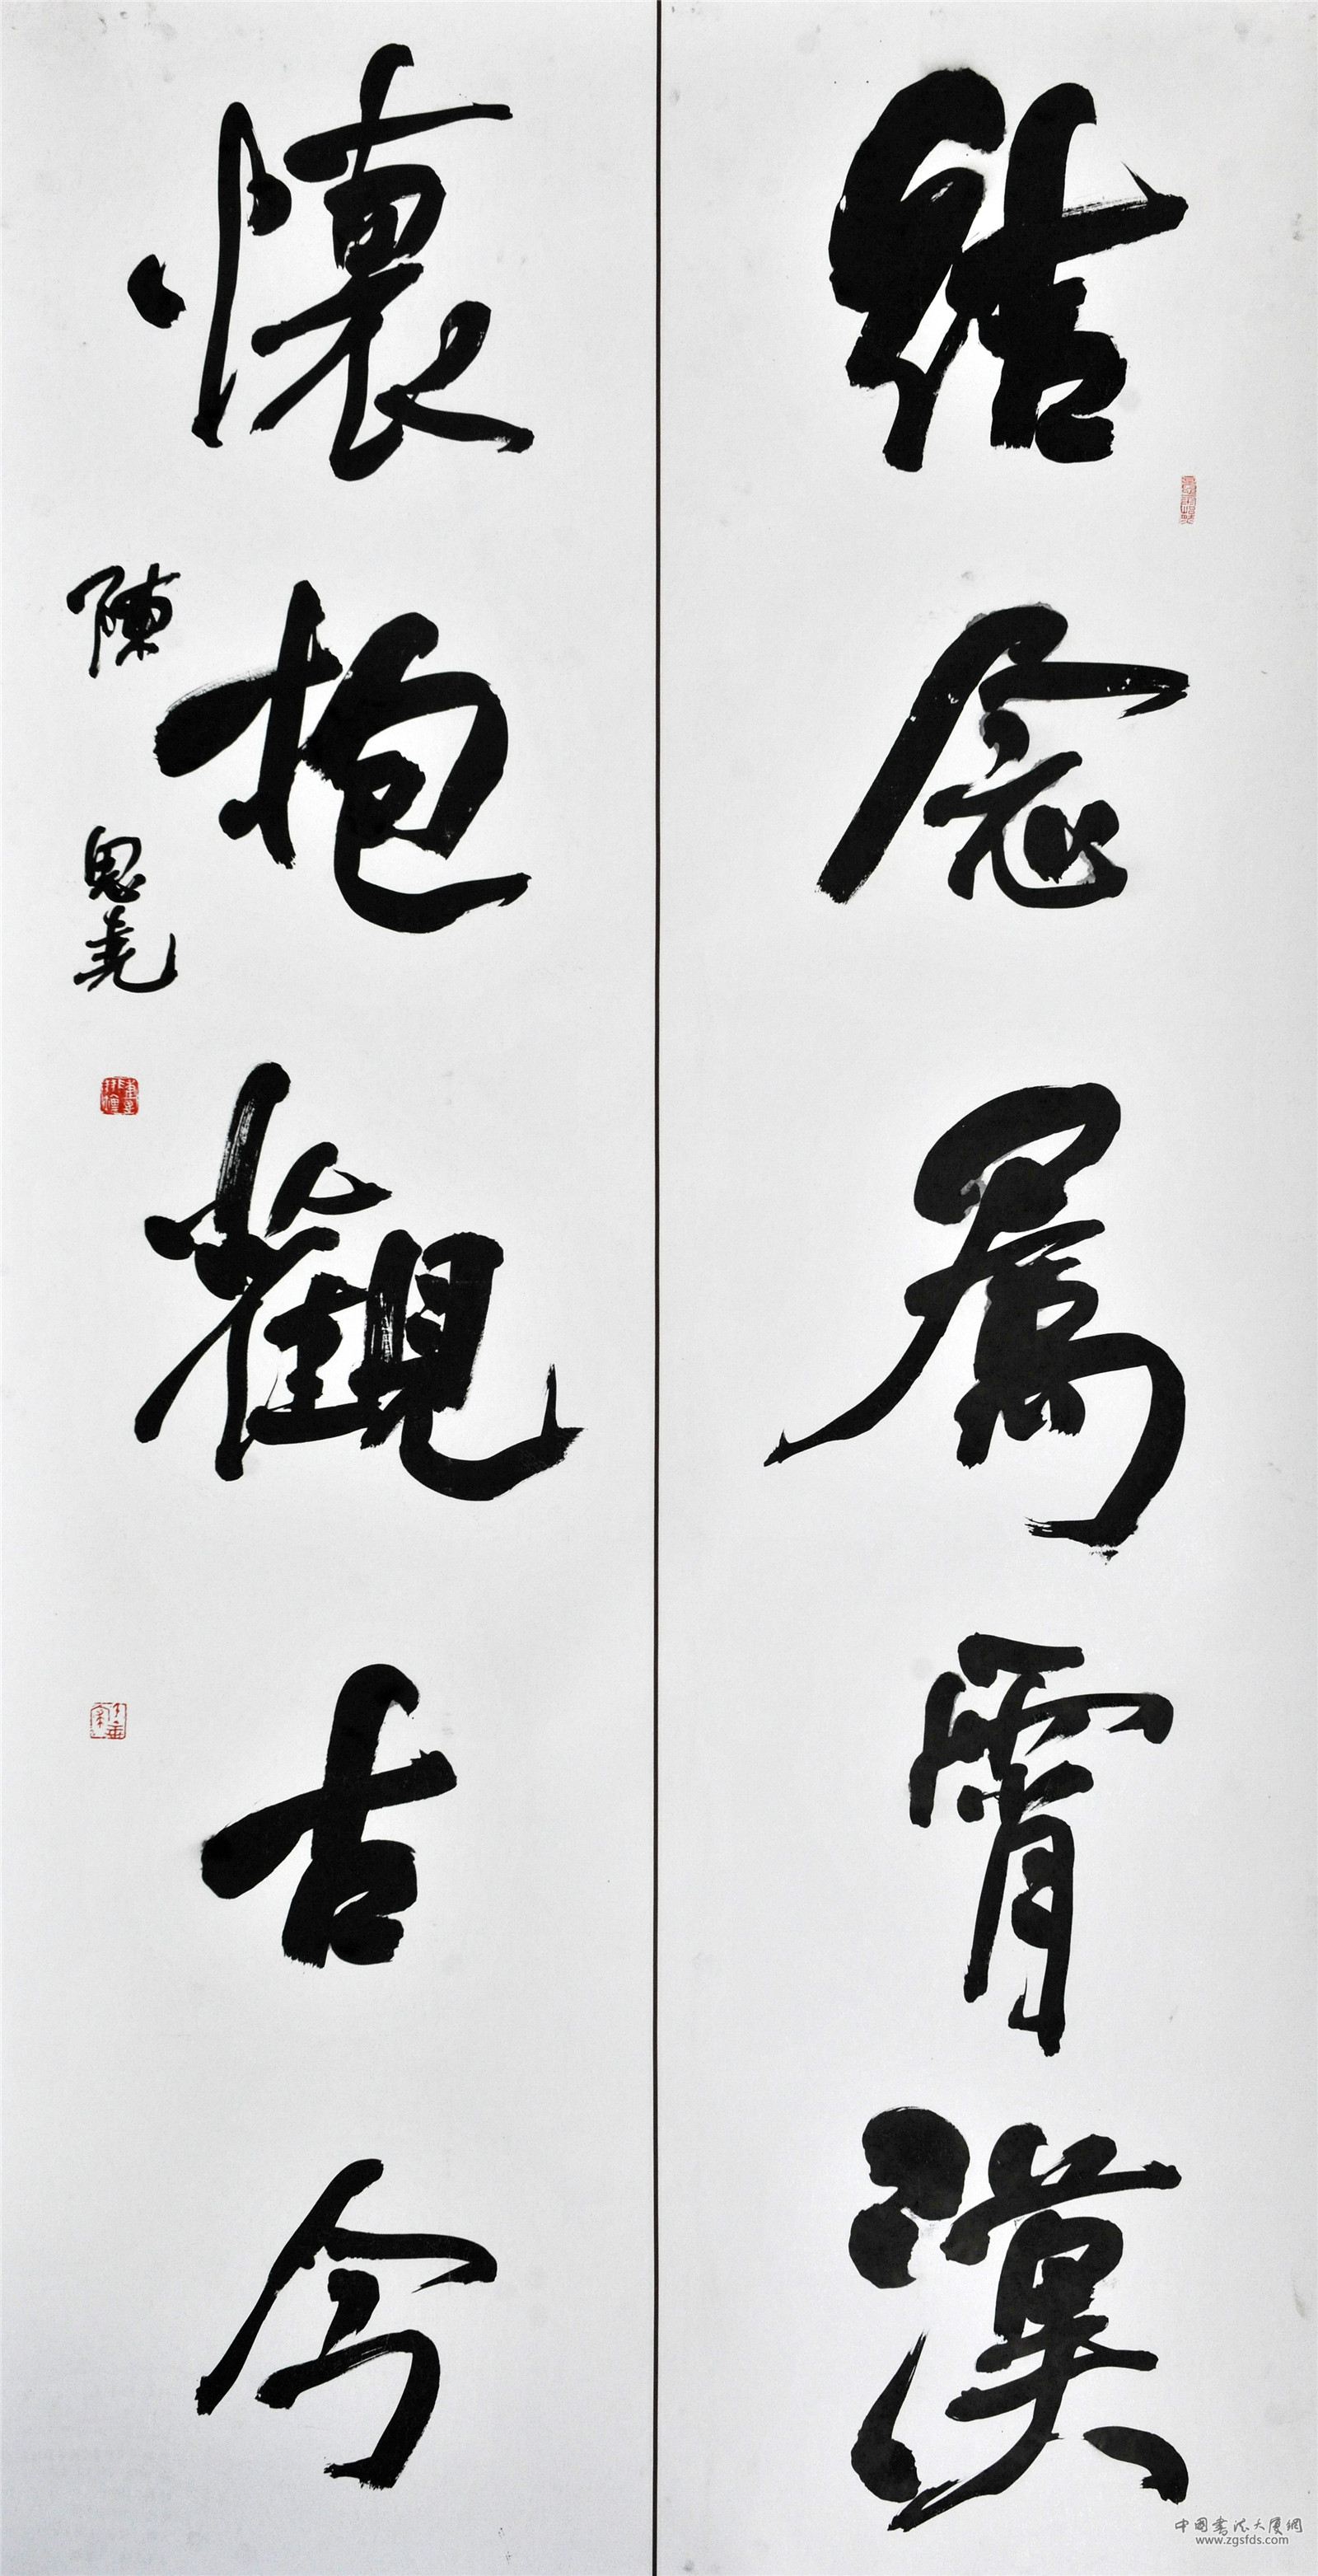 結念屬霄漢
懷抱觀古今
陳思堯
中国书法大厦網
www.zgsfds.com